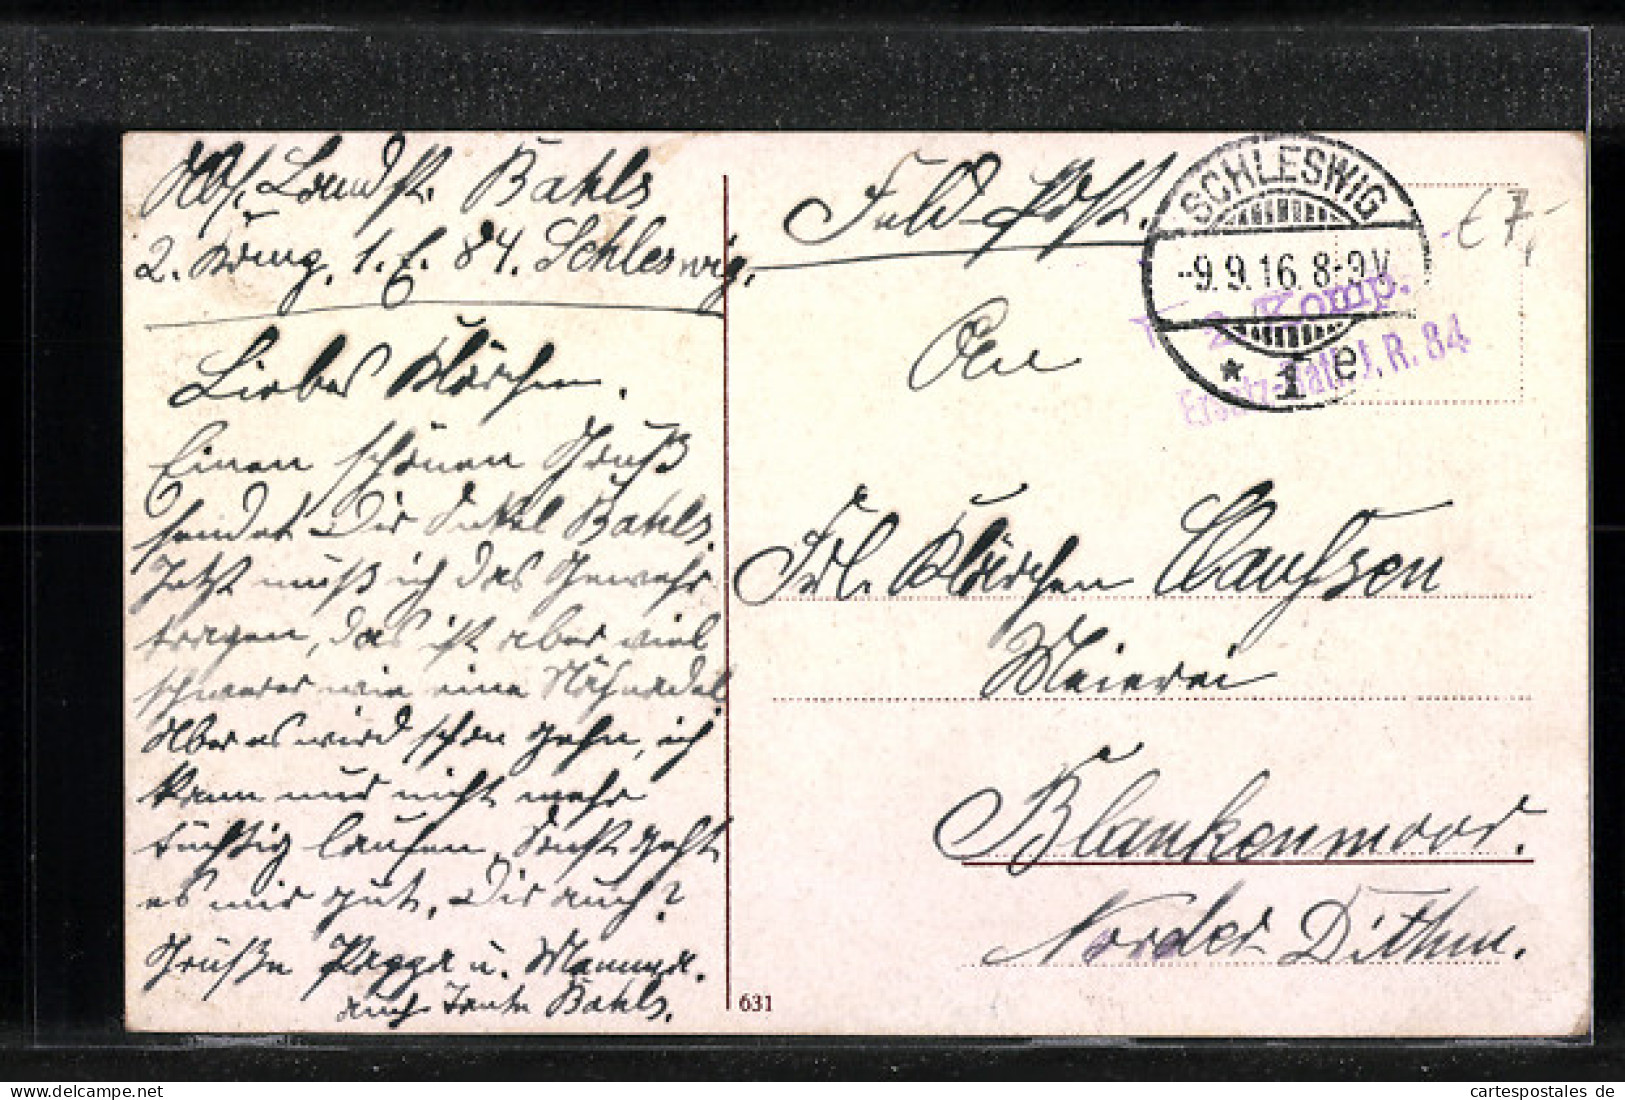 Abs. Landst. Bahls
2. Komp. 1. E. 84. Schleswig.
Liebes Klärchen.
Einen schönen Gruß
sendet Dir Onkel Bahls.
Jetzt muß ich das Gewehr
tragen, das ist aber viel
schwerer wie eine Nähnadel
Aber es wird schon gehn, ich
kann nur nicht mehr
tüchtig laufen. Sonst geht
es mir gut, Dir auch?
Grüße Pappa u. Mamma.
auch Tante Bahls.
Feld-Post.
SCHLESWIG
-9.9.16.8-9V
* 1 e
2. Komp.
Ersatz-Batl. J. R. 84
€ 7,-
An
Frl. Klärchen Claussen
Meierei
Blankenmoor.
Norder Dithm.
631
cartespostales de